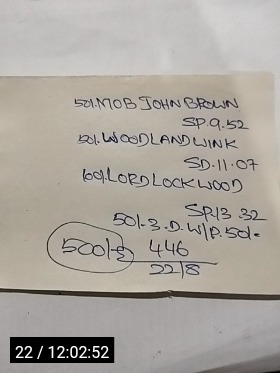 50/. MOB JOHN BROWN
SP. 9. 52
50/. WOODLAND WINK
SD. 11. 07
60/. LORD LOCKWOOD
SP. 13. 32
50/- 3. D. W/P. 50/=
500/- 446
22/8
22 / 12:02:52